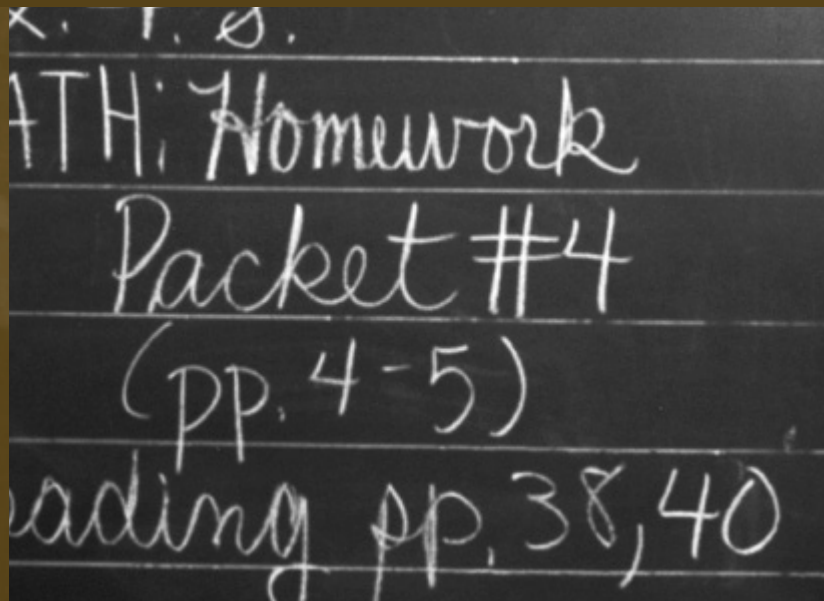 ATH: Homework
Packet #4
(pp. 4-5)
eading pp. 38, 40